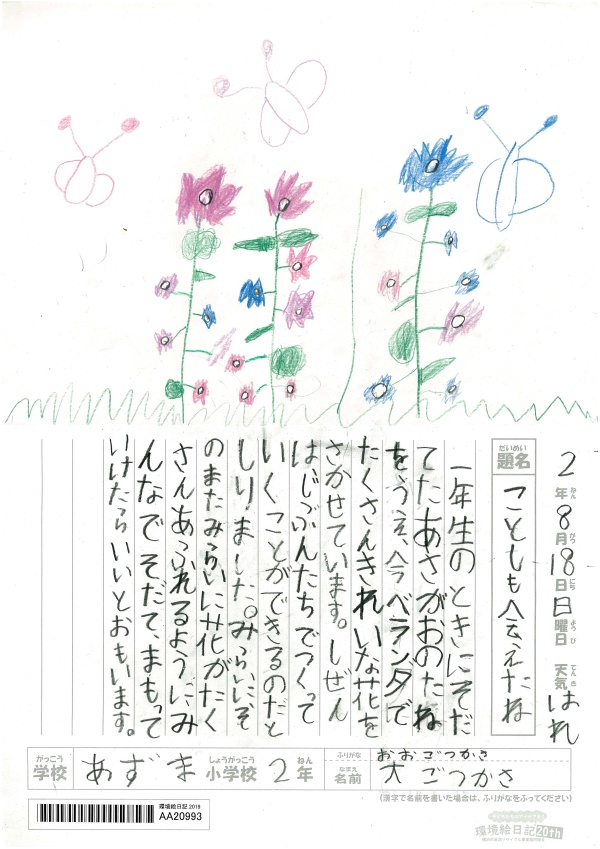 2年8月18日日曜日 天気はれ
ねん がつ にち ようび てんき
だいめい
題名 ことしも会えたね
一年生のときにそだ
てたあさがおのたね
をうえ、今ベランダで
たくさんきれいな花を
さかせています。しぜん
はじぶんたちでつくって
いくことができるのだと
しりました。みらいにそ
のまたみらいに花がたく
さんあふれるようにみ
んなでそだて、まもって
いけたらいいとおもいます。
がっこう しょうがっこう ねん ふりがな おおごつかさ
学校 あずま 小学校 2年 なまえ 名前 大ごつかさ
(漢字で名前を書いた場合は、ふりがなをふってください)
環境絵日記2019
AA20993
環境絵日記20th